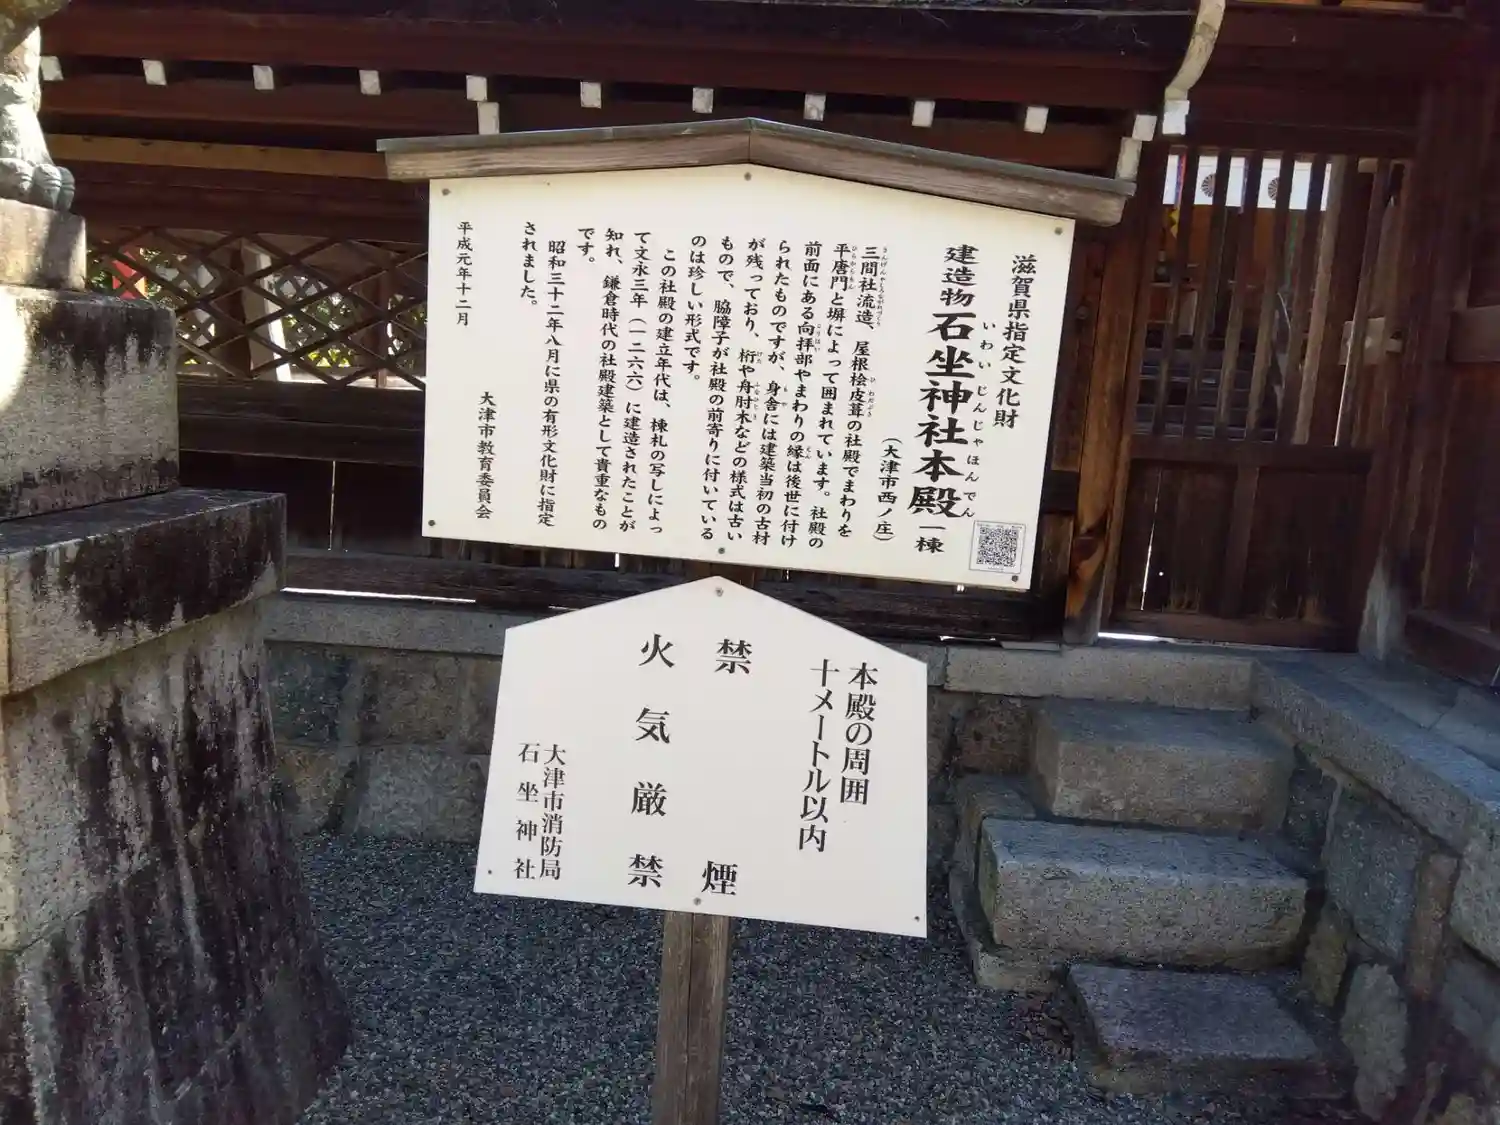 滋賀県指定文化財
建造物石坐神社本殿一棟
いわいじんじゃほんでん
(大津市西ノ庄)
三間社流造、屋根桧皮葺の社殿でまわりを
平唐門と塀によって囲まれています。社殿の
前面にある向拝部やまわりの縁は後世に付け
られたものですが、身舎には建築当初の古材
が残っており、桁や舟肘木などの様式は古い
もので、脇障子が社殿の前寄りに付いている
のは珍しい形式です。
この社殿の建立年代は、棟札の写しによっ
て文永三年(一二六六)に建造されたことが
知れ、鎌倉時代の社殿建築として貴重なもの
です。
昭和三十二年八月に県の有形文化財に指定
されました。
平成元年十二月
大津市教育委員会
本殿の周囲
十メートル以内
禁煙
火気厳禁
大津市消防局
石坐神社